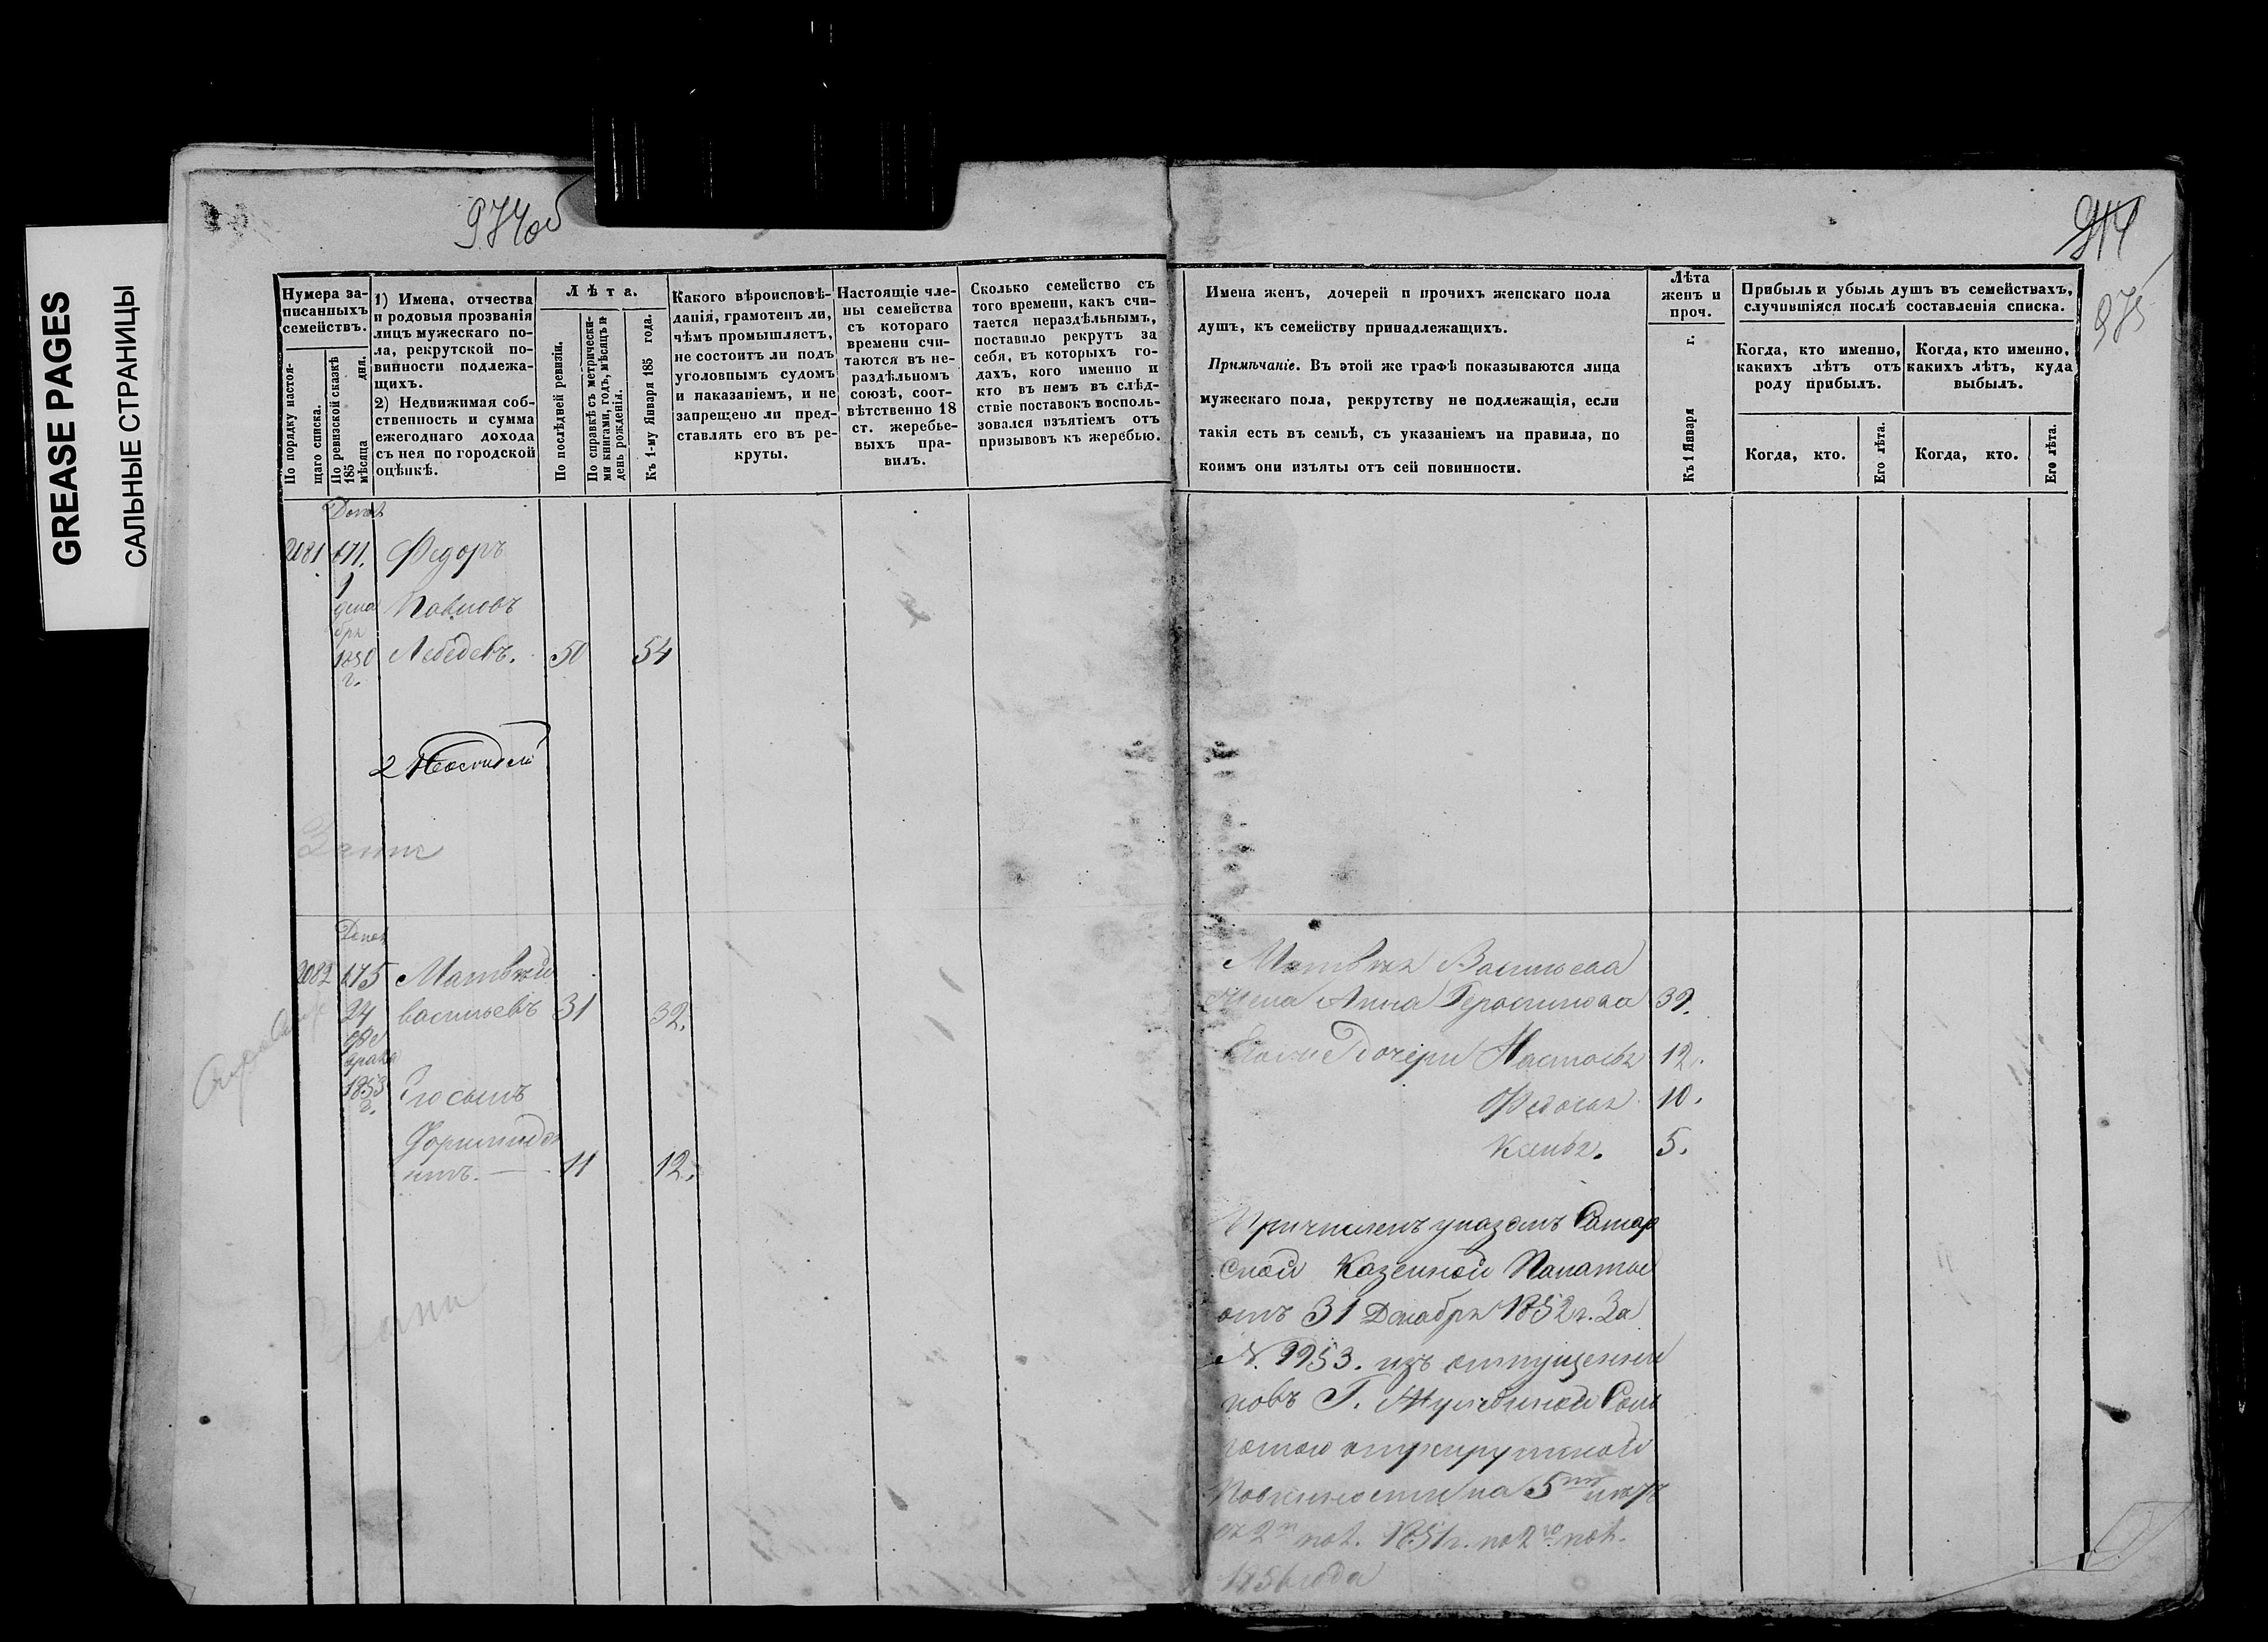 GREASE PAGES
САЛЬНЫЕ СТРАНИЦЫ
974об
914
975
Нумера за-
писанныхъ
семействъ.
По порядку настоя-
щаго списка.
По ревизской сказкѣ
185
мѣсяца дня.
1) Имена, отчества
и родовыя прозванія
лицъ мужескаго по-
ла, рекрутской по-
винности подлежа-
щихъ.
2) Недвижимая соб-
ственность и сумма
ежегоднаго дохода
съ нея по городской
оцѣнкѣ.
Лѣта.
По послѣдней ревизіи.
По справкѣ съ метрически-
ми книгами, годъ, мѣсяцъ и
день рожденія.
Къ 1-му Января 185 года.
Какого вѣроисповѣ-
данія, грамотенъ ли,
чѣмъ промышляетъ,
не состоитъ ли подъ
уголовнымъ судомъ
и наказаніемъ, и не
запрещено ли пред-
ставлять его въ ре-
круты.
Настоящіе чле-
ны семейства
съ котораго
времени счи-
таются въ не-
раздѣльномъ
союзѣ, соот-
вѣтственно 18
ст. жеребье-
выхъ пра-
вилъ.
Сколько семейство съ
того времени, какъ счи-
тается нераздѣльнымъ,
поставило рекрутъ за
себя, въ которыхъ го-
дахъ, кого именно и
кто въ немъ въ слѣд-
ствіе поставокъ восполь-
зовался изъятіемъ отъ
призывовъ къ жеребью.
Имена женъ, дочерей и прочихъ женскаго пола
душъ, къ семейству принадлежащихъ.
Примѣчаніе. Въ этой же графѣ показываются лица
мужескаго пола, рекрутству не подлежащія, если
такія есть въ семьѣ, съ указаніемъ на правила, по
коимъ они изъяты отъ сей повинности.
Лѣта
женъ и
проч.
Къ 1 Января г.
Прибыль и убыль душъ въ семействахъ,
случившіяся послѣ составленія списка.
Когда, кто именно,
какихъ лѣтъ отъ
роду прибылъ.
Когда, кто именно,
какихъ лѣтъ, куда
выбылъ.
Когда, кто.
Его лѣта.
Когда, кто.
Его лѣта.
2081 171. Федоръ
1
дека Павловъ
бря
1850 Лебедевъ. 50 54
г.
2082 175 Матвѣй
24 Васильевъ 31 32.
фе
враля
1853 Его сынъ
г.
11 12.
Матвѣя Васильева
жена Анна Герасимова 32.
дочери Настасья 12.
Федосья 10.
5.
Причисленъ указомъ Самар
ской Казенной Палаты
отъ 31 Декабря 1852 г. за
N. 9953. изъ отпущенни
ковъ Г.
рекрутской
повинности на 5
1851 г. по 2го пол.
1856 года